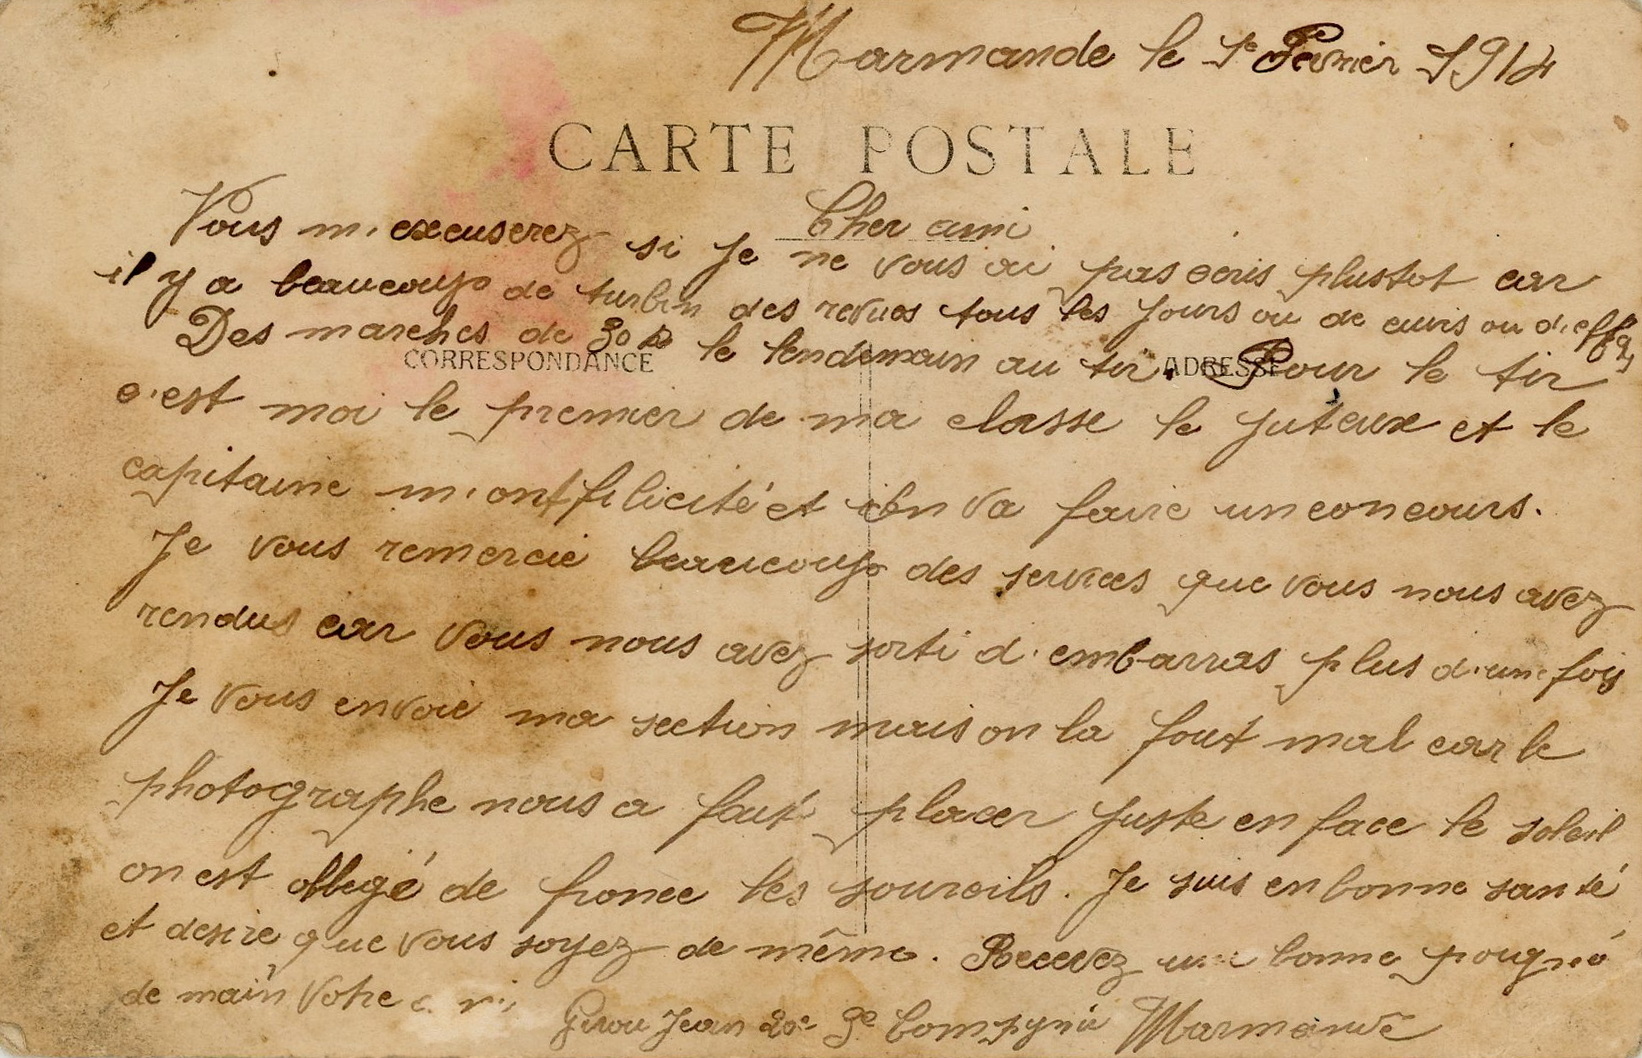 Marmande le 1e Fevrier 1914
CARTE POSTALE
Cher ami
Vous m'excuserez si je ne vous ai pas ecris plustot car
il y a beaucoup de turbin des revues tous les jours ou de cuirs ou d'effets
Des marches de 30 k le lendemain au tir. Pour le tir
CORRESPONDANCE
ADRESSE
c'est moi le premier de ma classe le juteux et le
capitaine m'ont filicité et on va faire un concours.
Je vous remercie beaucoup des services que vous nous avez
rendus car vous nous avez sorti d'embarras plus d'une fois
Je vous envoie ma section mais on la fout mal car le
photographe nous a fait placer juste en face le soleil
on est obligé de fronce les sourcils. Je suis en bonne santé
et desire que vous soyez de même. Recevez une bonne pougné
de main Votre
Jean 20e 9e Compagnie Marmande